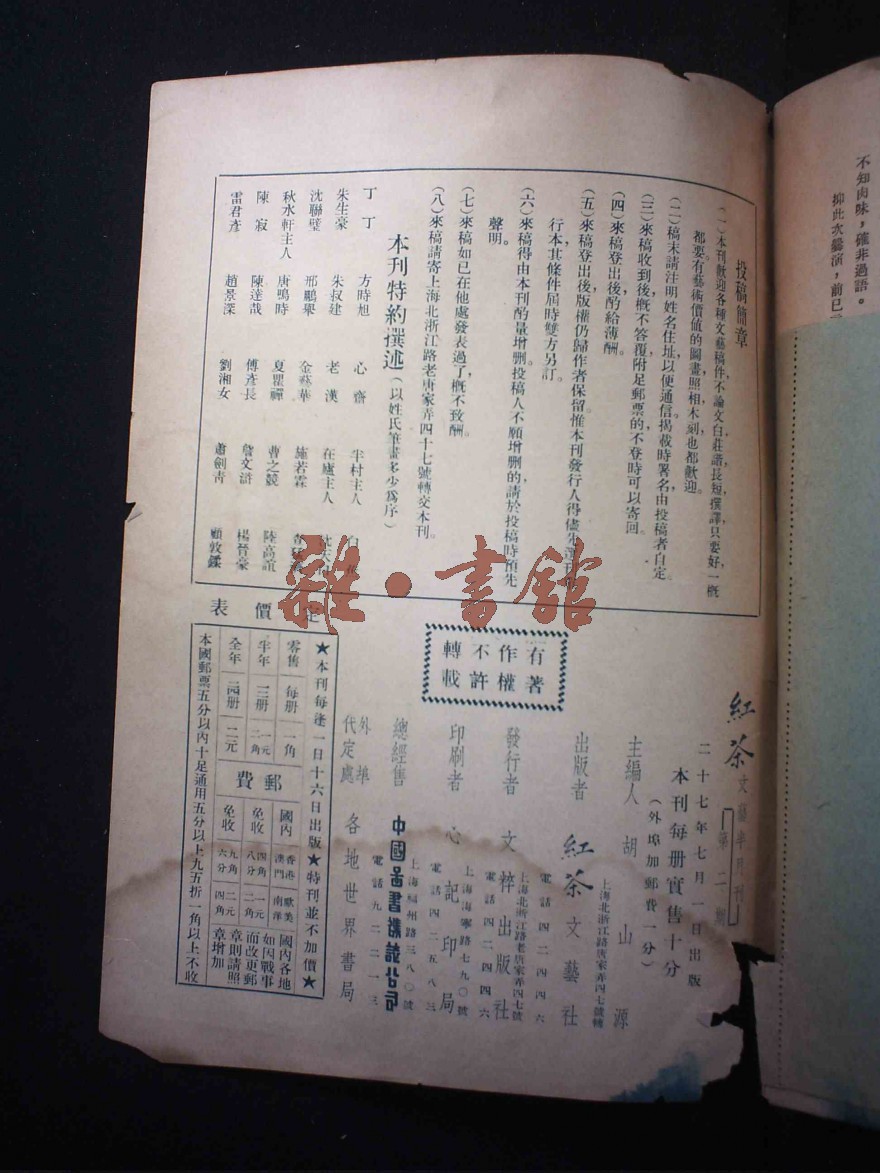 不知肉味，確非過語。
投稿簡章
(一)本刊歡迎各種文藝稿件不論文白莊諧，長短，撰譯，只要好一概
都要。有藝術價値的圖畫照相，木刻也都歡迎。
(二)稿末請注明姓名住址，以便通信。揭載時署名由投稿者自定。
(三)來稿收到後，概不答覆附足郵票的，不登時可以寄回。
(四)來稿登出後，酌給薄酬。
(五)來稿登出後，版權仍歸作者保留，惟本刊發行人得儘先
行本，其條件屆時雙方另訂。
(六)來稿得由本刊酌量增删。投稿人不願增删的，請於投稿時預先
聲明。
(七)來稿如已在他處發表過了，概不致酬。
(八)來稿請寄上海北浙江路老唐家弄四十七號轉交本刊。
本刊特約撰述(以姓氏筆畫多少爲序)
丁丁 方時旭 心齋 半村主人 白
朱生豪 朱叔建 老漢 在廬主人
沈聯璧 邢鵬舉 金葢華 施若霖
秋水軒主人 唐鳴時 夏瞿禪 曹之競 陸高誼
陳寂 陳達哉 傅彥長 詹文滸 楊晉豪
雷君彥 趙景深 劉湘女 蕭劍靑 顧敦鍒
雜·書館
紅茶文藝半月刊 第二期
二十七年七月一日出版
本刊每册實售十分
(外埠加郵費一分)
主編人 胡山源
上海北浙江路唐家弄四七號轉
出版者 紅茶文藝社
電話四二四四六
上海北浙江路老唐家弄四七號
發行者 文粹出版社
電話四二四四六
上海海寧路七九〇號
印刷者 心記印局
電話四二五八三
上海福州路三八〇號
總經售 中國圖書雜誌公司
電話九二二一三
外埠代定處 各地世界書局
有著作權不許轉載
定價表
★本刊每逢一日十六日出版★特刊並不加價★
零售 每册 一角
半年 十二册 一元二角
全年 二十四册 二元
郵費
國內 香港澳門 歐美南洋
免收 四角八分 一元二角
免收 九角六分 二元四角
國內各地如因戰事而改更郵章則請照章增加
本國郵票五分以內十足通用五分以上九五折一角以上不收